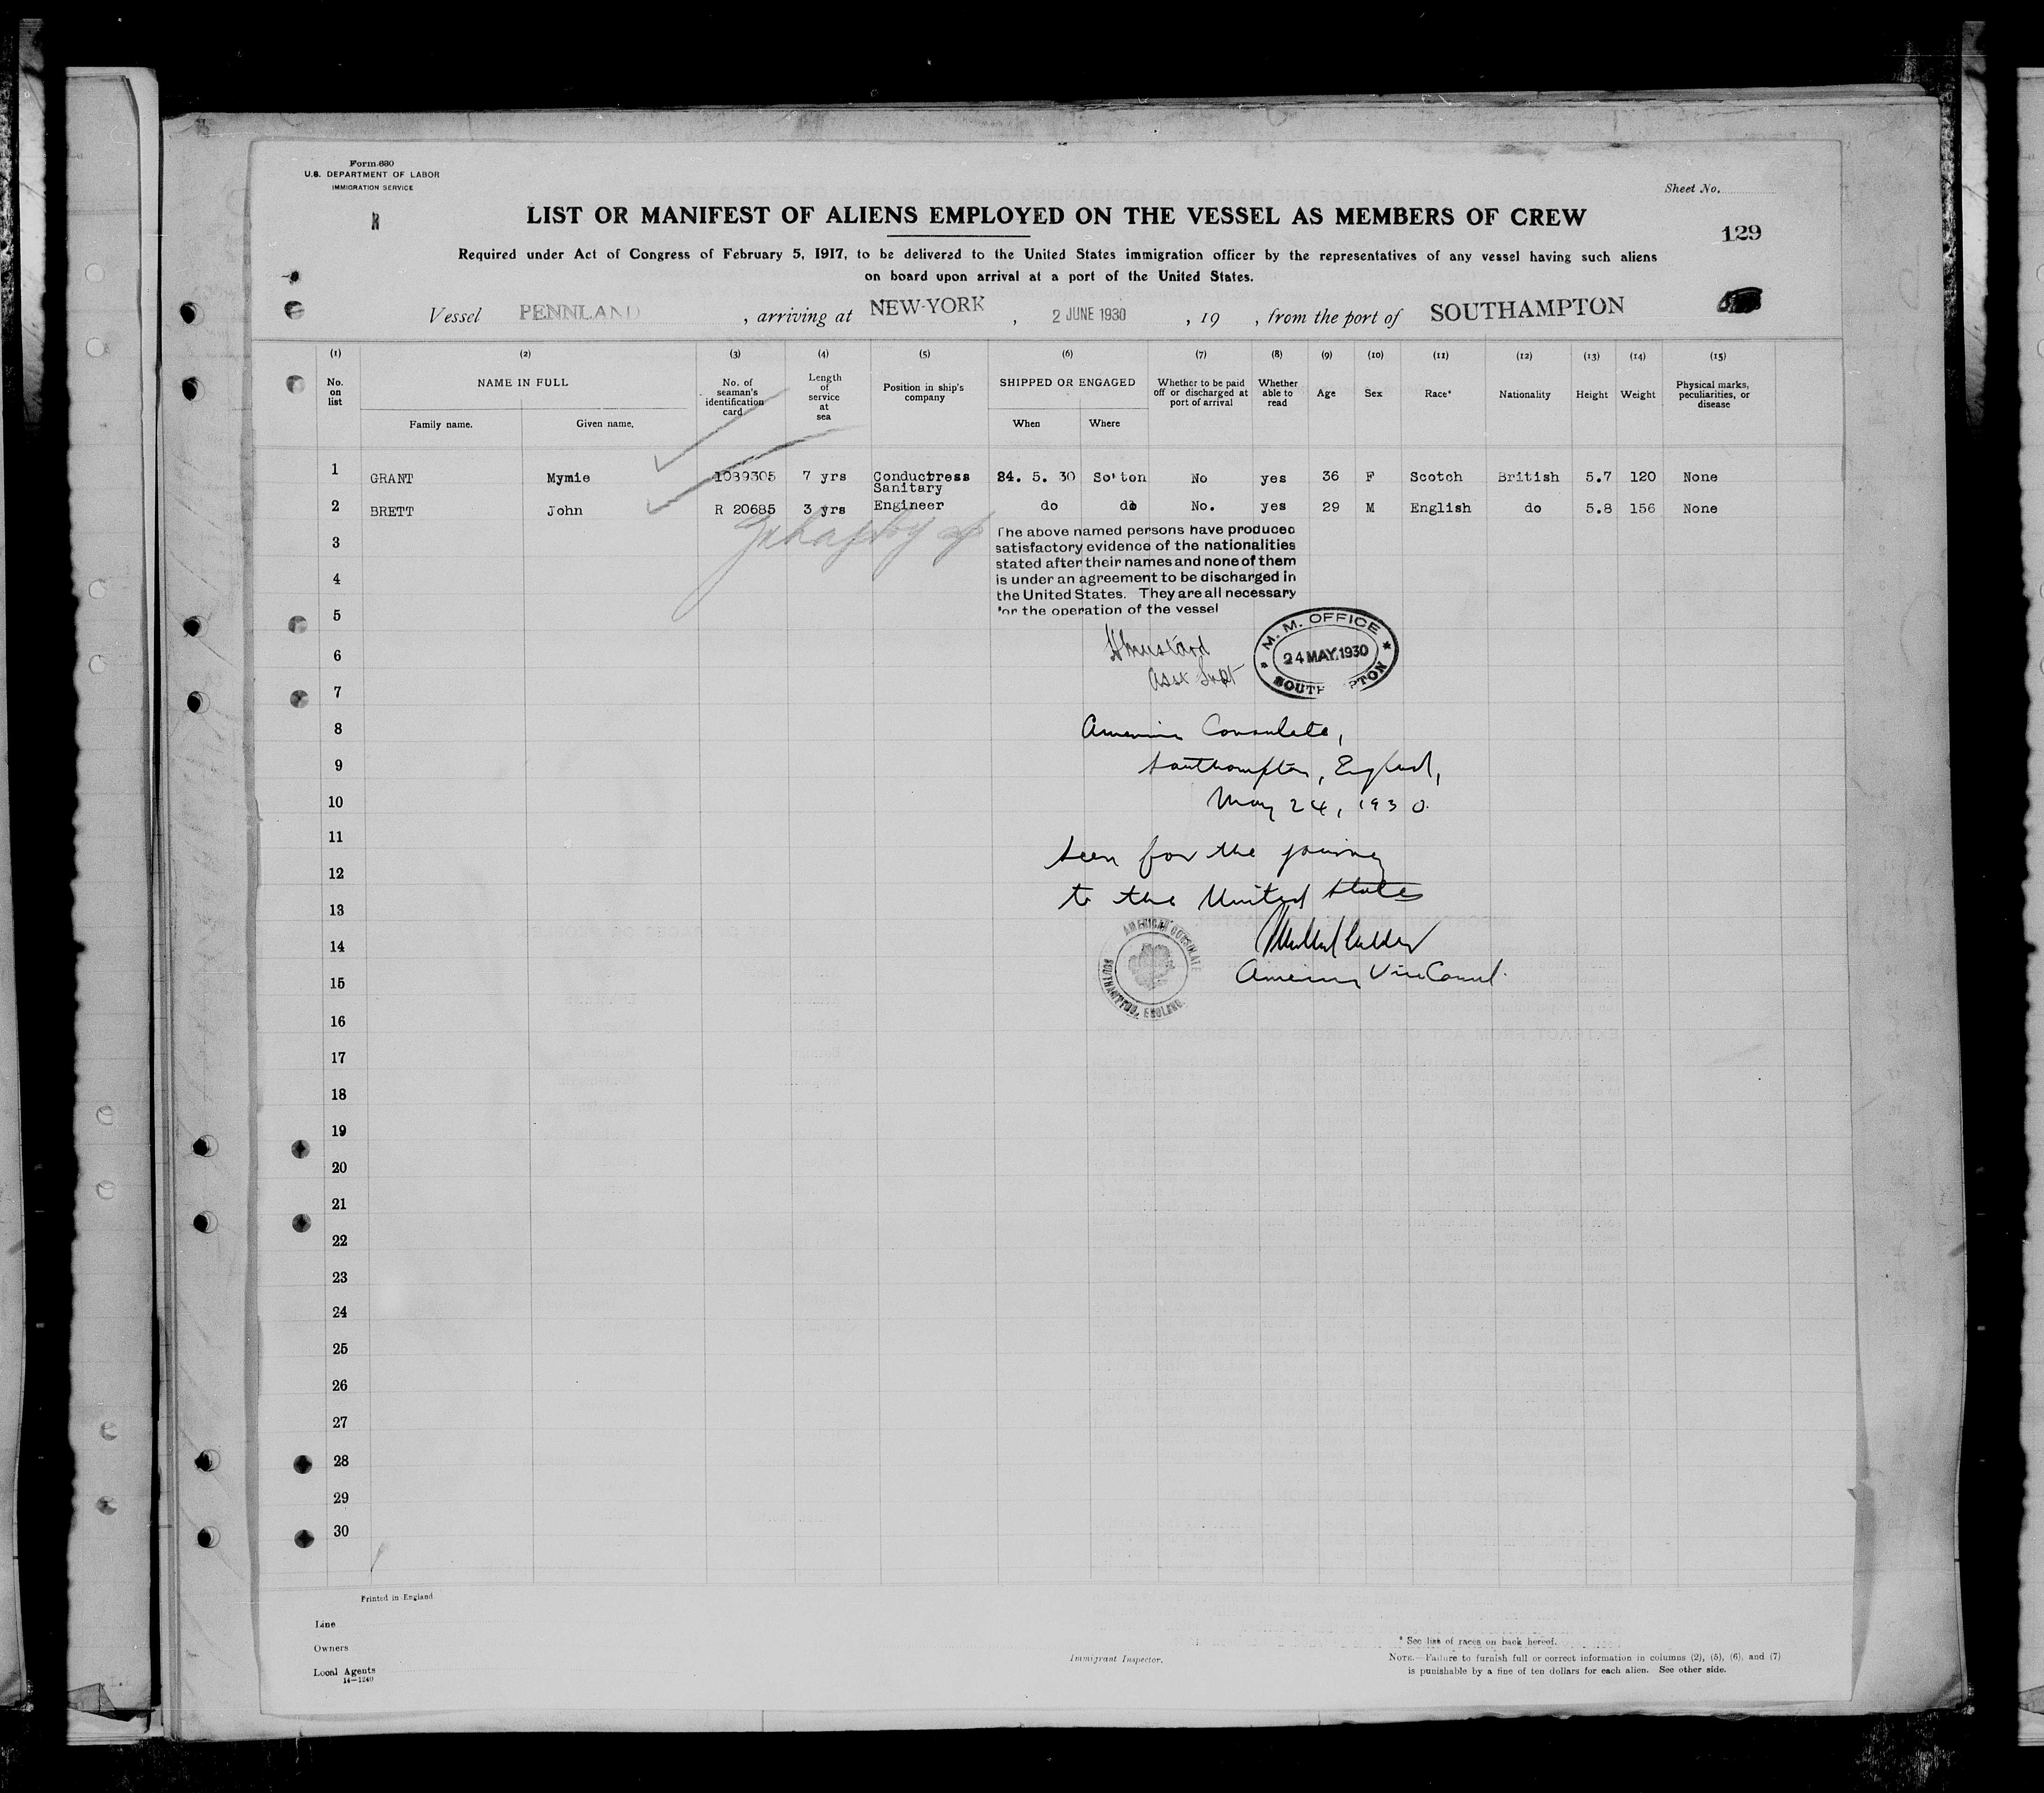 Form 680
U.S. DEPARTMENT OF LABOR
IMMIGRATION SERVICE
Sheet No.
LIST OR MANIFEST OF ALIENS EMPLOYED ON THE VESSEL AS MEMBERS OF CREW
129
Required under Act of Congress of February 5, 1917, to be delivered to the United States immigration officer by the representatives of any vessel having such aliens
on board upon arrival at a port of the United States.
Vessel PENNLAND , arriving at NEW-YORK , 2 JUNE 1930 , 19 , from the port of SOUTHAMPTON
(1) (2) (3) (4) (5) (6) (7) (8) (9) (10) (11) (12) (13) (14) (15)
No. on list NAME IN FULL Family name. Given name. No. of seaman's identification card Length of service at sea Position in ship's company SHIPPED OR ENGAGED When Where Whether to be paid off or discharged at port of arrival Whether able to read Age Sex Race* Nationality Height Weight Physical marks, peculiarities, or disease
1 GRANT Mymie 1089305 7 yrs Conductress 24. 5. 30 So'ton No yes 36 F Scotch British 5.7 120 None
2 BRETT John R 20685 3 yrs Sanitary Engineer do do No. yes 29 M English do 5.8 156 None
3
4
5
6
7
8
9
10
11
12
13
14
15
16
17
18
19
20
21
22
23
24
25
26
27
28
29
30
The above named persons have produced
satisfactory evidence of the nationalities
stated after their names and none of them
is under an agreement to be discharged in
the United States. They are all necessary
for the operation of the vessel
Asst Supt
M. M. OFFICE
24 MAY 1930
SOUTH PTON
American Consulate,
Southampton, England,
May 24, 1930.
Seen for the journey
to the United States
American Vice Consul.
AMERICAN CONSULATE
SOUTHAMPTON, ENGLAND.
Printed in England
Line
Owners
Local Agents
14-1240
Immigrant Inspector.
* See list of races on back hereof.
NOTE.—Failure to furnish full or correct information in columns (2), (5), (6), and (7)
is punishable by a fine of ten dollars for each alien. See other side.